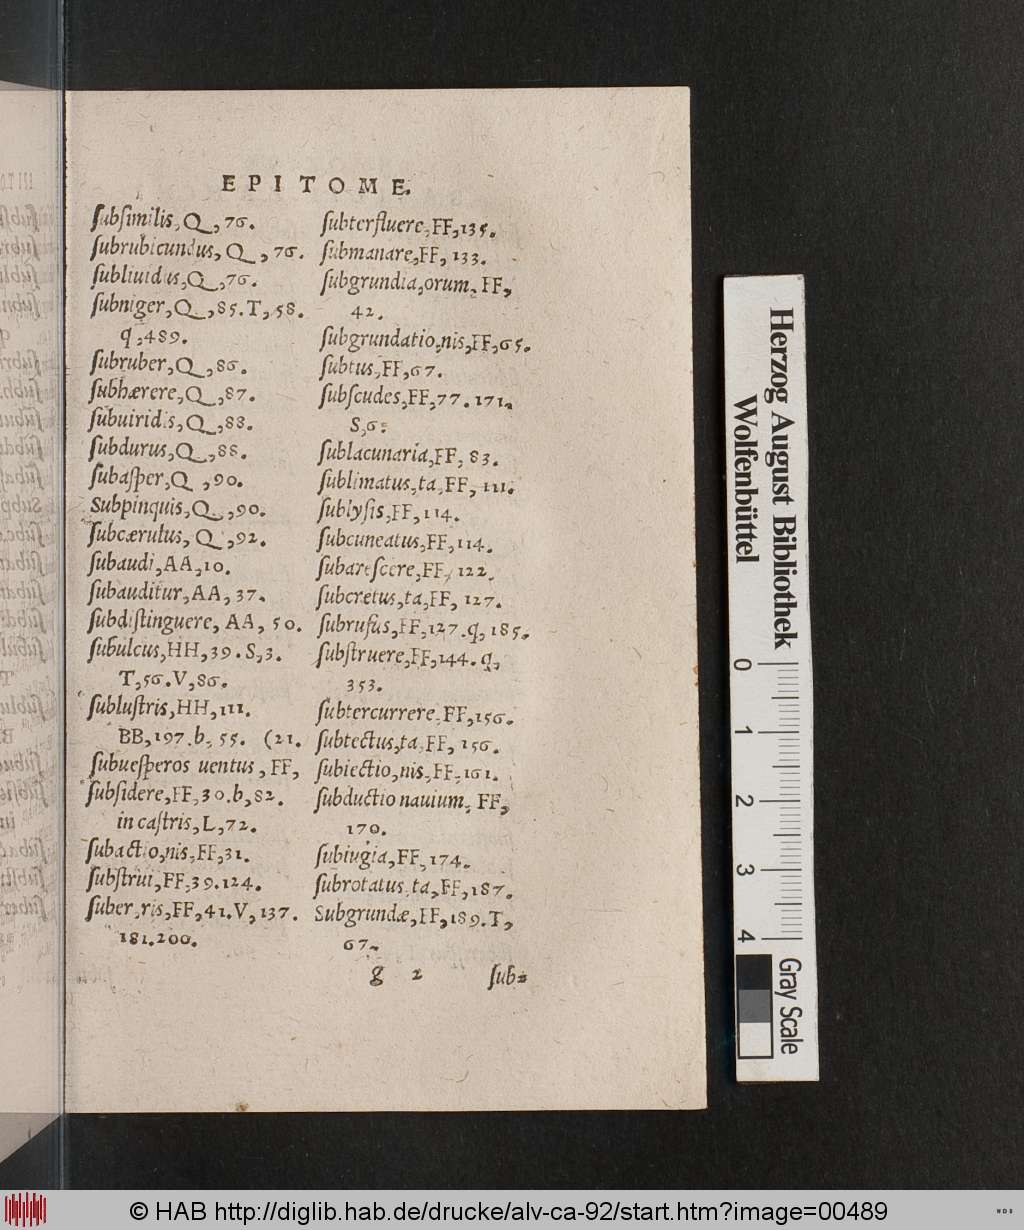 EPITOME.
ſubſimilis, Q, 76.
ſubrubicundus, Q, 76.
ſubliuidus, Q, 76.
ſubniger, Q, 85. T, 58.
q, 489.
ſubruber, Q, 86.
ſubhærere, Q, 87.
ſubuiridis, Q, 88.
ſubdurus, Q, 88.
ſubaſper, Q, 90.
Subpinquis, Q, 90.
ſubcærulus, Q, 92.
ſubaudi, AA, 10.
ſubauditur, AA, 37.
ſubdiſtinguere, AA, 50.
ſubulcus, HH, 39. S, 3.
T, 56. V, 86.
ſubluſtris, HH, 111.
BB, 197. b, 55. (21.
ſubueſperos uentus, FF,
ſubſidere, FF, 30. b, 82.
in caſtris, L, 72.
ſubactio, nis, FF, 31.
ſubſtrui, FF, 39. 124.
ſuber, ris, FF, 41. V, 137.
181. 200.
ſubterfluere, FF, 135.
ſubmanare, FF, 133.
ſubgrundia, orum, FF,
42.
ſubgrundatio, nis, FF, 65.
ſubtus, FF, 67.
ſubſcudes, FF, 77. 171.
S, 6.
ſublacunaria, FF, 83.
ſublimatus, ta, FF, 111.
ſublyſis, FF, 114.
ſubcuneatus, FF, 114.
ſubareſcere, FF, 122.
ſubcretus, ta, FF, 127.
ſubrufus, FF, 127. q, 185.
ſubſtruere, FF, 144. q,
353.
ſubtercurrere, FF, 156.
ſubtectus, ta, FF, 156.
ſubiectio, nis, FF, 161.
ſubductio nauium, FF,
170.
ſubiugia, FF, 174.
ſubrotatus, ta, FF, 187.
Subgrundæ, FF, 189. T,
67.
g 2 ſub=
Herzog August Bibliothek
Wolfenbüttel
0 1 2 3 4
Gray Scale
© HAB http://diglib.hab.de/drucke/alv-ca-92/start.htm?image=00489